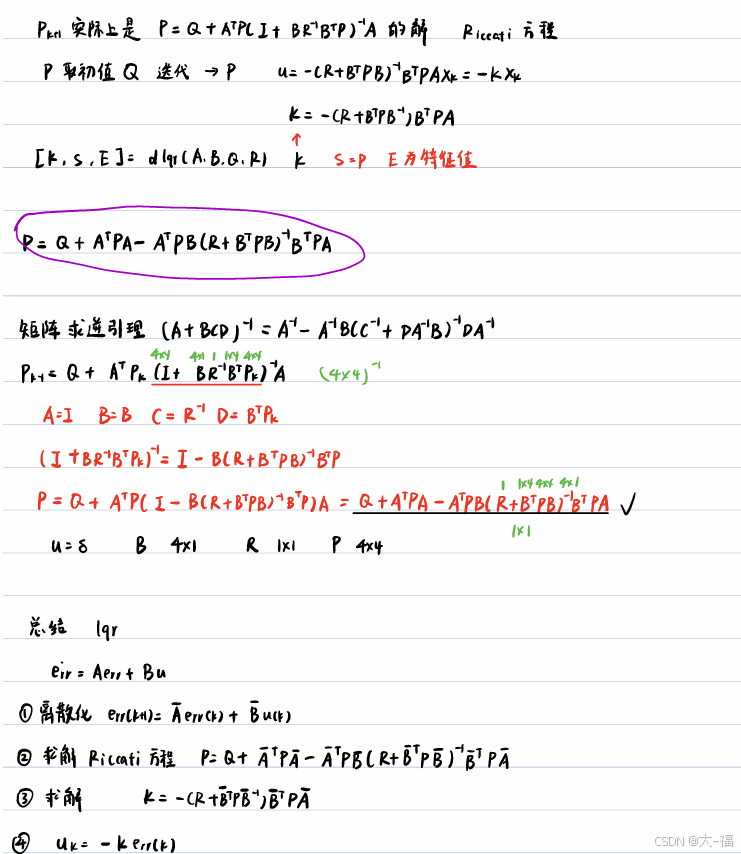 P_{k+1} 实际上是 P = Q + AᵀP(I + BR⁻¹BᵀP)⁻¹A 的解 Riccati 方程
P 取初值 Q 迭代 → P u = -(R+BᵀPB)⁻¹BᵀPAx_k = -Kx_k
K = -(R+BᵀPB⁻¹)BᵀPA
↑
[K, S, E] = dlqr(A.B.Q.R) K S=P E 为特征值
P = Q + AᵀPA - AᵀPB(R+BᵀPB)⁻¹BᵀPA
矩阵求逆引理 (A+BCD)⁻¹ = A⁻¹ - A⁻¹B(C⁻¹+DA⁻¹B)⁻¹DA⁻¹
4x4 4x1 1 1x4 4x4
P_{k-1} = Q + AᵀP_k(I+ BR⁻¹BᵀP_k)⁻¹A (4x4)⁻¹
A=I B=B C=R⁻¹ D=BᵀP_k
(I+BR⁻¹BᵀP_k)⁻¹ = I - B(R+BᵀPB)⁻¹BᵀP
1 1x4 4x4 4x1
P = Q + AᵀP(I-B(R+BᵀPB)⁻¹BᵀP)A = Q+AᵀPA - AᵀPB(R+BᵀPB)⁻¹BᵀPA ✓
1x1
u=δ B 4x1 R 1x1 P 4x4
总结 lqr
ėrr = Aerr + Bu
① 离散化 err(k+1) = Āerr(k) + B̄u(k)
② 求解 Riccati 方程 P = Q + ĀᵀPĀ - ĀᵀPB̄(R+B̄ᵀPB̄)⁻¹B̄ᵀPĀ
③ 求解 K = -(R+B̄ᵀPB̄⁻¹)B̄ᵀPĀ
④ u_k = -K err(k)
CSDN @大-福